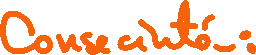 Consecintó: